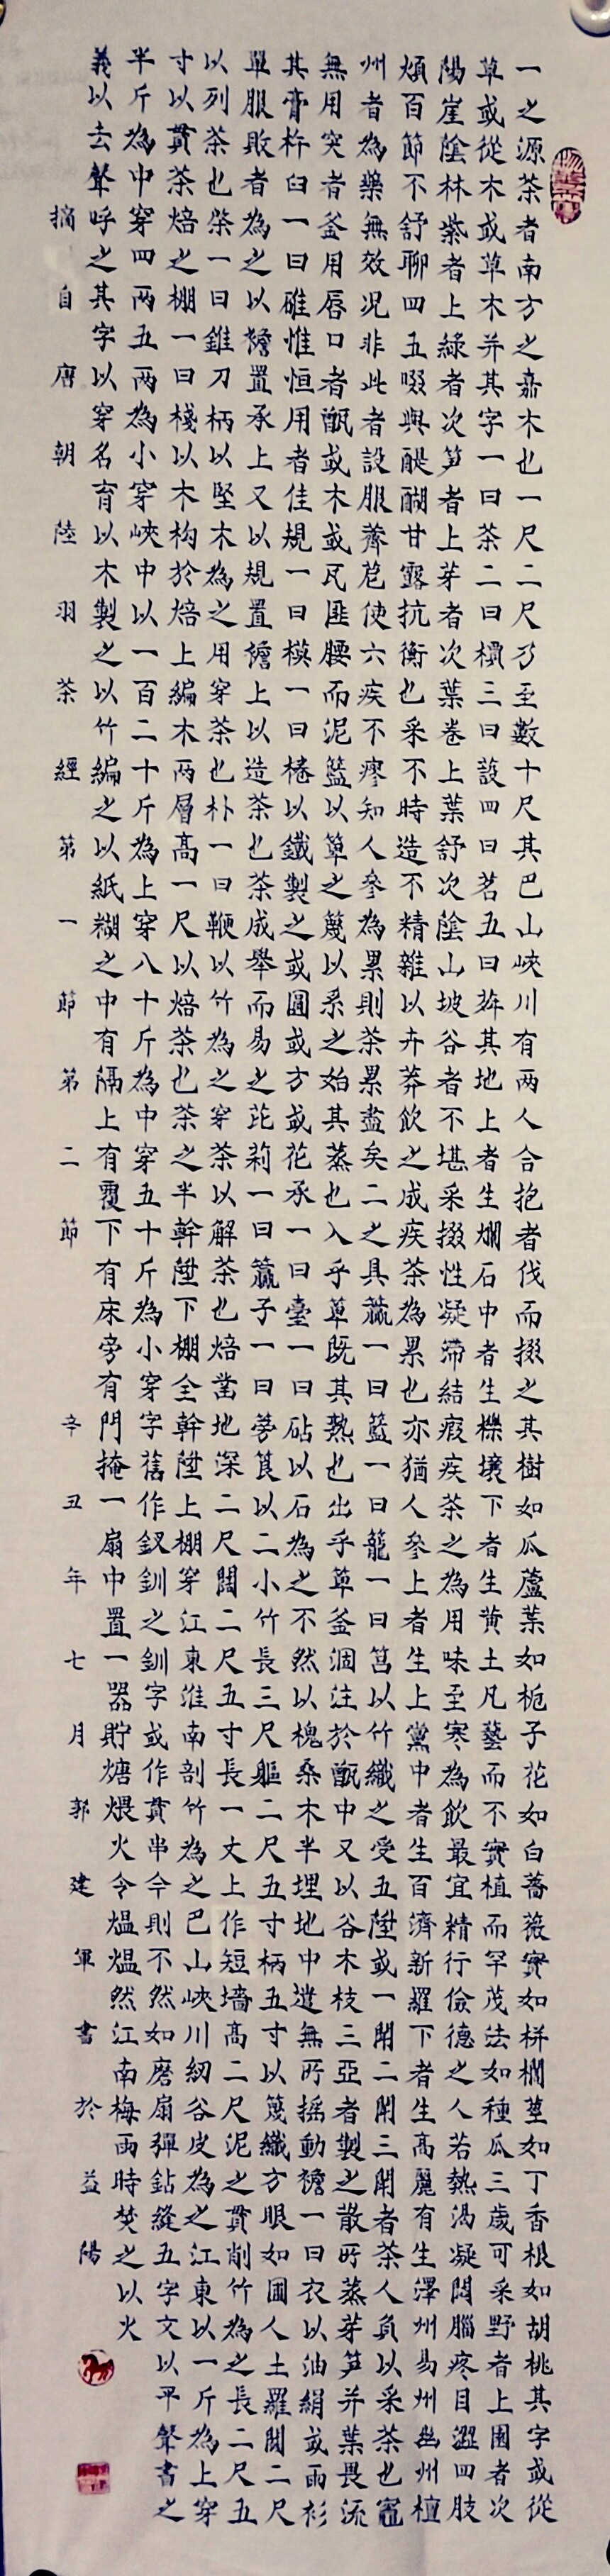 一之源茶者南方之嘉木也一尺二尺乃至數十尺其巴山峽川有两人合抱者伐而掇之其樹如瓜蘆葉如梔子花如白薔薇實如栟櫚莖如丁香根如胡桃其字或從
草或從木或草木并其字一曰茶二曰檟三曰蔎四曰茗五曰荈其地上者生爛石中者生櫟壤下者生黄土凡藝而不實植而罕茂法如種瓜三歲可采野者上園者次
陽崖陰林紫者上綠者次笋者上芽者次葉卷上葉舒次陰山坡谷者不堪采掇性凝滯結瘕疾茶之為用味至寒為飲最宜精行儉德之人若熱渴凝悶腦疼目澀四肢
煩百節不舒聊四五啜與醍醐甘露抗衡也采不時造不精雜以卉莽飲之成疾茶為累也亦猶人參上者生上黨中者生百濟新羅下者生高麗有生澤州易州幽州檀
州者為藥無效况非此者設服薺苨使六疾不瘳知人參為累則茶累盡矣二之具籯一曰籃一曰籠一曰筥以竹織之受五陞或一閗二閗三閗者茶人負以采茶也竈
無用突者釜用唇口者甑或木或瓦匪腰而泥籃以箄之篾以系之始其蒸也入乎箄既其熟也出乎箄釜涸注於甑中又以谷木枝三亞者製之散所蒸芽笋并葉畏流
其膏杵臼一曰碓惟恒用者佳規一曰模一曰棬以鐵製之或圓或方或花承一曰臺一曰砧以石為之不然以槐桑木半埋地中遣無所摇動襜一曰衣以油絹或雨衫
單服敗者為之以襜置承上又以規置襜上以造茶也茶成舉而易之芘莉一曰籯子一曰篣筤以二小竹長三尺軀二尺五寸柄五寸以篾織方眼如圃人土羅闊二尺
以列茶也棨一曰錐刀柄以堅木為之用穿茶也朴一曰鞭以竹為之穿茶以解茶也焙鑿地深二尺闊二尺五寸長一丈上作短墻高二尺泥之貫削竹為之長二尺五
寸以貫茶焙之棚一曰棧以木构於焙上編木两層高一尺以焙茶也茶之半幹陞下棚全幹陞上棚穿江東淮南剖竹為之巴山峽川紉谷皮為之江東以一斤為上穿
半斤為中穿四两五两為小穿峽中以一百二十斤為上穿八十斤為中穿五十斤為小穿字舊作釵釧之釧字或作貫串今則不然如磨扇彈鉆縫五字文以平聲書之
義以去聲呼之其字以穿名育以木製之以竹編之以紙糊之中有隔上有覆下有床旁有門掩一扇中置一器貯煻煨火令熅熅然江南梅雨時焚之以火
摘自唐朝陸羽茶經第一節第二節 辛丑年七月郭建軍書於益陽